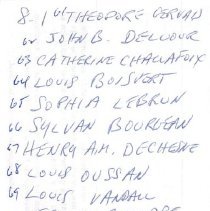 8-1 61 THEODORE GERVAIS
62 JOHN B. DELCOUR
63 CATHERINE CHALLAFOIX
64 LOUIS BOISVERT
65 SOPHIA LEBRUN
66 SYLVAN BOURDEAN
67 HENRY A.M. DECHESNE
68 LOUIS OUSSAN
69 LOUIS VANDALL